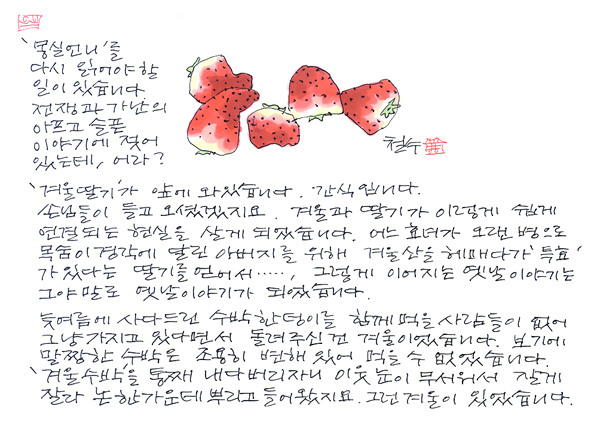 '몽실언니'를
다시 읽어야 할
일이 있습니다
전쟁과 가난의
아프고 슬픈
이야기에 젖어
있는데, 어라?
철수
'겨울딸기'가 앞에 와있습니다. 간식입니다.
손님들이 들고 오셨겠지요. 겨울과 딸기가 이렇게 쉽게
연결되는 현실을 살게 되었습니다. 어느 효녀가 오랜 병으로
목숨이 경각에 달린 아버지를 위해 겨울산을 헤매다가 '특효'
가 있다는 딸기를 얻어서‥‥‥, 그렇게 이어지는 옛날이야기는
그야말로 옛날이야기가 되었습니다.
늦여름에 사다드린 수박 한덩이를 함께 먹을 사람들이 없어
그냥 가지고 있다면서 돌려주신 건 겨울이었습니다. 보기에
말짱한 수박은 조용히 변해 있어 먹을 수 없었습니다.
'겨울수박'을 통째 내다버리자니 이웃 눈이 무서워서 잘게
잘라 논 한가운데 뿌리고 들어왔지요. 그런 겨울이 있었습니다.